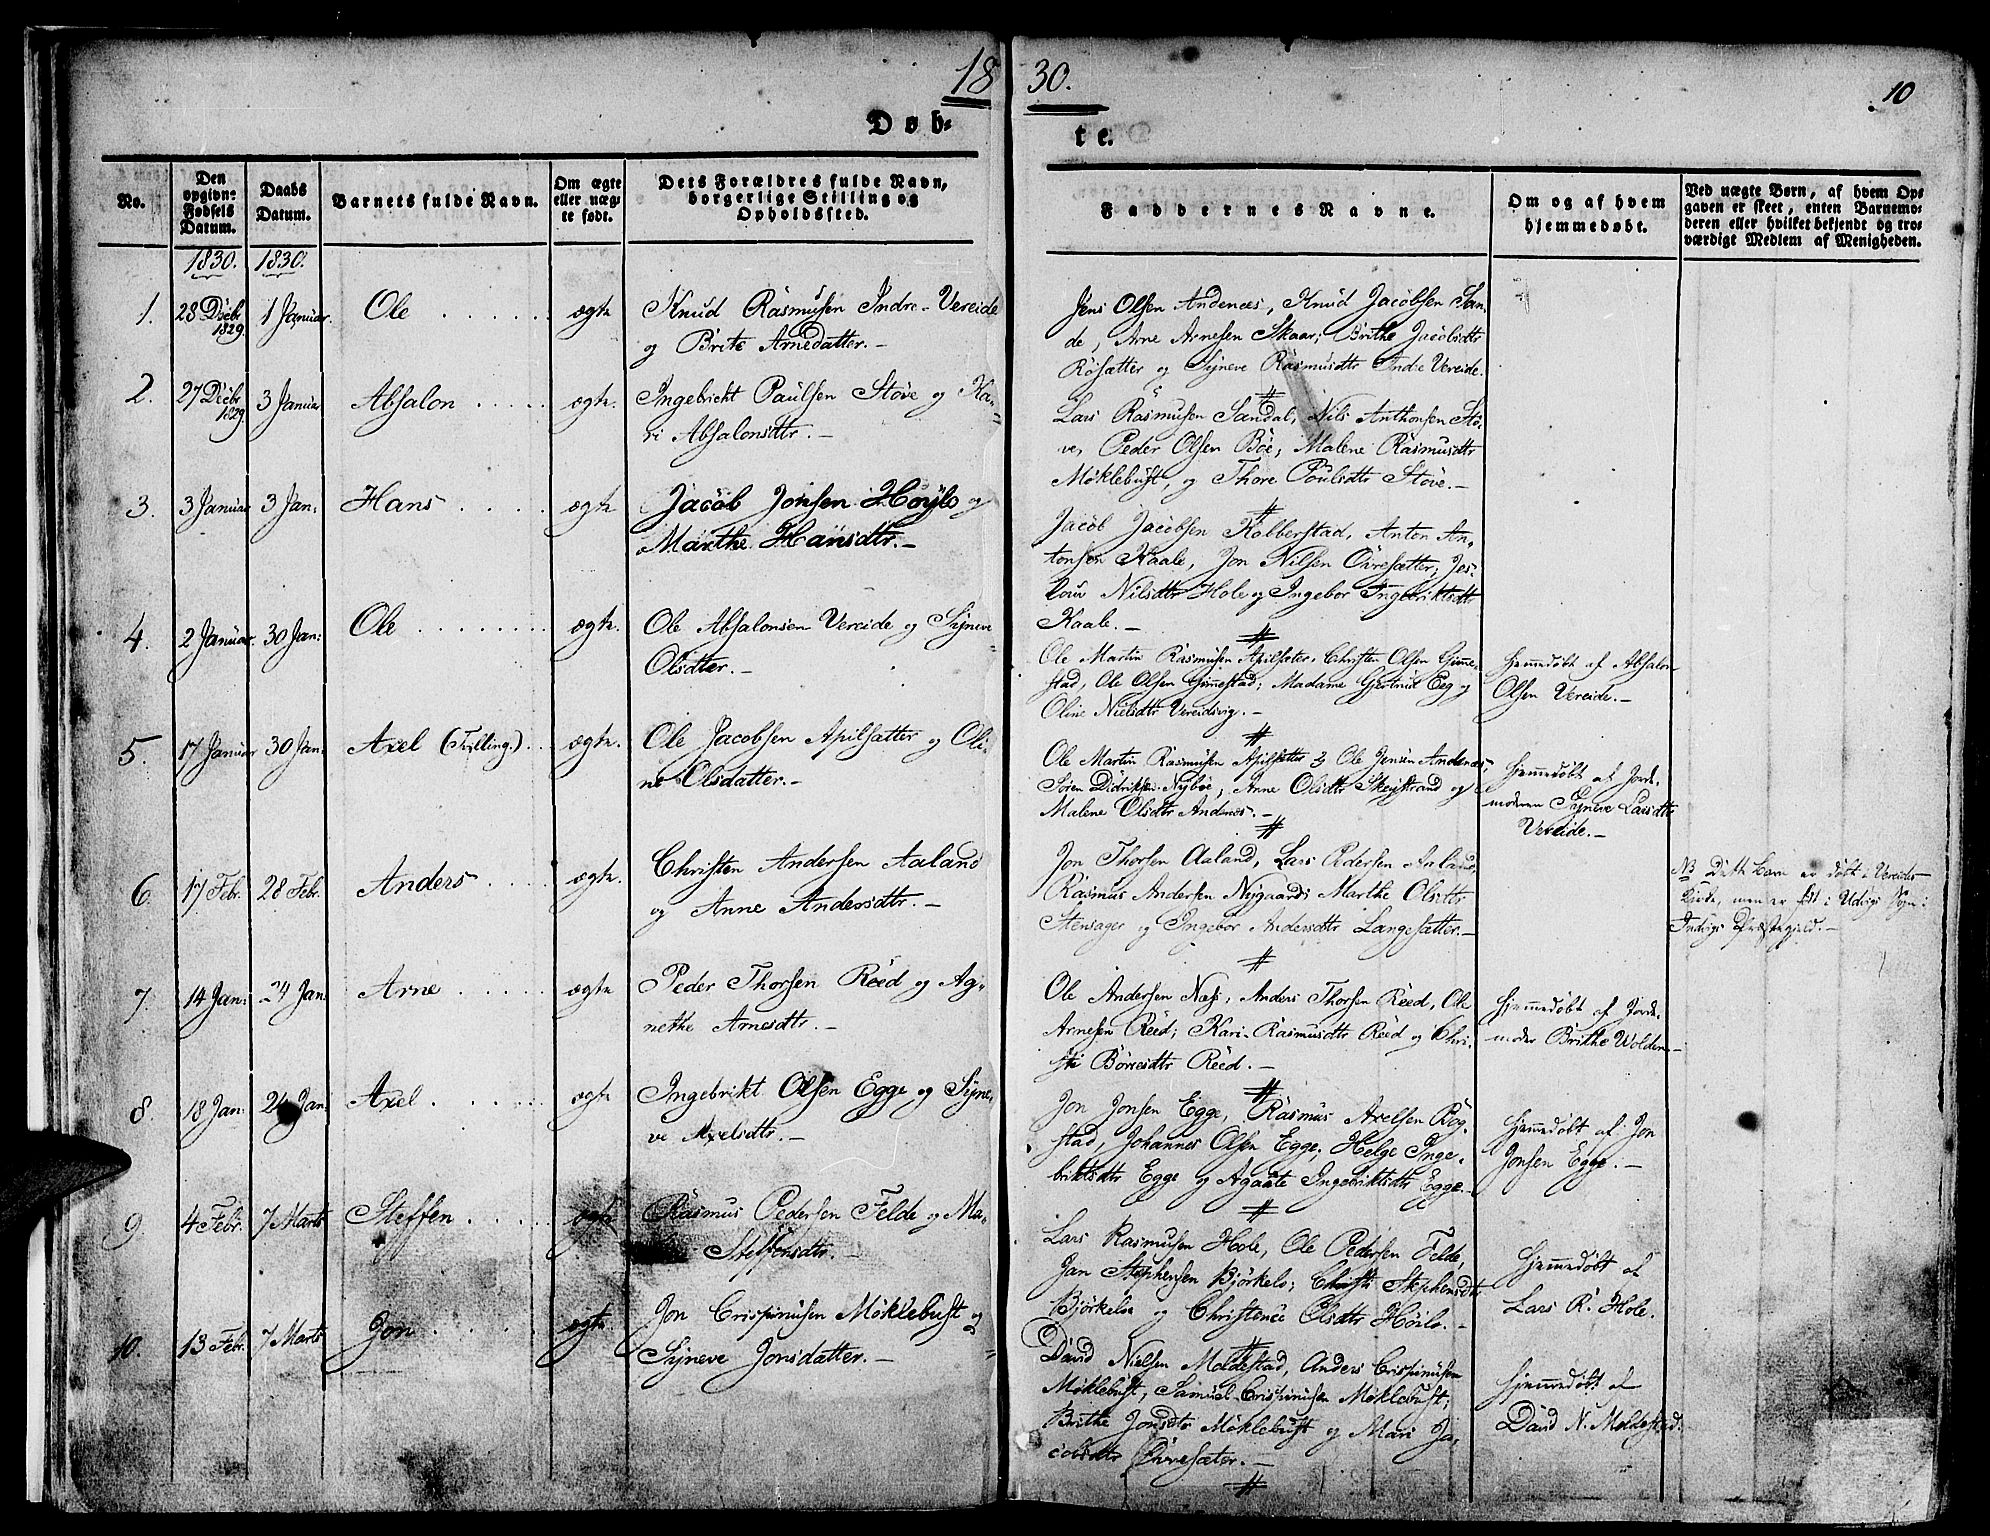 1830.
10
Døb-
te.
No.
Den
opgivn-
Fødsels
Datum.
Daabs
Datum.
Barnets fulde Navn.
Om ægte
eller uæg-
te født.
Dets Forældres fulde Navn,
borgerlige Stilling og
Opholdssted.
Faddernes Navne.
Om og af hvem
hjemmedøbt.
Ved uægte Børn, af hvem Op-
gaven er skeet, enten Barnemo-
deren eller hvilket bekjendt og tro-
værdigt Medlem af Menigheden.
1830. 1830.
1. 28 Decbr 1829. 1 Januar. Ole ægte Knud Rasmusen Indre-Vereide
og Brite Arnedatter.-
Jens Olsen Andenæs, Knud Jacobsen San-
de, Arne Arnesen Skaar; Brithe Jacobsdtr
Rosætter og Syneve Rasmusdtr Indre Vereide.
2. 27 Decbr 1829. 3 Januar Absalon ægte. Ingebricht Paulsen Støve og Ka-
ri Absalonsdtr.-
Lars Rasmusen Sandal, Nils Anthonsen Stö-
ve, Peder Olsen Böe, Malene Rasmusdtr
Møklebust, og Thore Poulsdtr Støve.-
3. 3 Januar 3 Jan: Hans ægte Jacob Jonsen Höylo og
Marthe Hansdtr.-
Jacob Jacobsen Kolberstad, Anton An-
tonsen Kaale, Jon Nilsen Övresætter;
Nilsdtr Hole og Ingebor Ingebriktsdtr
Kaale.-
4. 2 Januar. 30 Jan: Ole ægte. Ole Absalonsen Vereide og Syneve
Olsdtter.-
Ole Martin Rasmusen Apilsæter, Christen Olsen Gimme-
stad, Ole Olsen Gimmestad; Madame Gjertrud Eeg og
Oline Nielsdtr Vereidsvig.-
Hjemmedøbt af Absalon
Olsen Vereide.-
5. 17 Januar 30 Jan: Axel (Tvilling.) ægte. Ole Jacobsen Apilsætter og Oli-
ne Olsdatter.-
Ole Martin Rasmusen Apilsætter, Ole Jensen Andenæs,
Sören Didriksen Nybøe, Anne Olsdtr Skejstrand og
Malene Olsdtr Andenæs.-
Hjemmedøbt af Jorde-
moderen Synneve Larsdtr
Vereide.-
6. 17 Febr. 28 Febr. Anders ægte. Christen Andersen Aaland
og Anne Andersdtr.-
Jon Thorsen Aaland, Lars Pedersen Aaland,
Rasmus Andersen Nygaard; Marthe Olsdtr
Stensager og Ingebor Andersdtr Langesætter.-
NB Dette Barn er døbt i Vereides
Kirke, men er født i Udvigs Sogn i
Indvigs Præstegjeld.-
7. 14 Jan: 24 Jan: Arne ægte Peder Thorsen Reed og Ag-
nethe Arnesdtr.-
Ole Andersen Næss, Anders Thorsen Reed, Ole
Arnesen Reed; Kari Rasmusdtr Reed og Chri-
sti Börresdtr Reed.-
Hjemmedøbt af Jorde-
moder Brithe Wolden.-
8. 18 Jan: 24 Jan. Axel ægte Ingebrikt Olsen Egge og Syne-
ve Axelsdtr.-
Jon Jonsen Egge, Rasmus Axelsen Røg-
stad, Johannes Olsen Egge; Helge Inge-
briktsdtr Egge og Agaate Ingebriktsdtr Egge.-
Hjemmedøbt af Jon
Jonsen Egge.-
9. 4 Febr. 7 Marts Steffen ægte Rasmus Pedersen Felde og Ma-
Steffensdtr.-
Lars Rasmusen Hole, Ole Pedersen Felde,
Jan Stephensen Björkelo; Christi Stephensdtr
Björkeloe og Christence Olsdtr Höilo.-
Hjemmedøbt af
Lars R. Hole.
10. 13 Febr. 7 Marts Jon ægte. Jon Crispinusen Møklebust og
Synneve Jonsdatter.-
David Nielsen Moldestad, Anders Crispinusen
Møklebust, Samuel Crispinusen Møklebust;
Brithe Jonsdtr Møklebust og Mari Ja-
cobsdtr Övresæter.-
Hjemmedøbt af
David N. Moldestad.